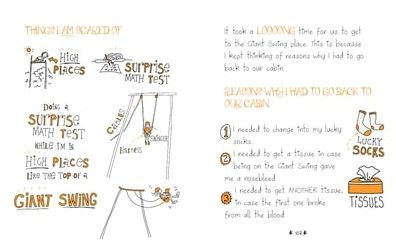 THINGS I AM SCARED OF
HIGH
PLACES
SURPRISE
MATH
TEST
DOING A
SURPRISE
MATH TEST
WHILE I'M IN
HIGH PLACES
LIKE THE TOP OF A
GIANT SWING
CABLES
SWINGER
HARNESS
It took a LOOOONG time for us to get
to the Giant Swing place. This is because
I kept thinking of reasons why I had to go
back to our cabin.
REASONS WHY I HAD TO GO BACK TO
OUR CABIN
1 I needed to change into my lucky
socks.
2 I needed to get a tissue in case
being on the Giant Swing gave
me a nosebleed.
3 I needed to get ANOTHER tissue,
in case the first one broke
from all the blood
LUCKY
SOCKS
TISSUES